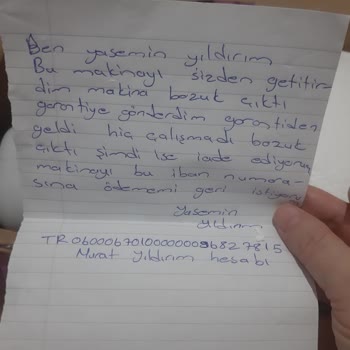 Ben yasemin yıldırım
Bu makinayı sizden getitir
dim makina bozuk çıktı
garantiye gönderdim garantiden
geldi hiç çalışmadı bozuk
çıktı şimdi ise iade ediyorum
makinayı bu iban numara-
sına ödememi geri istiyorum
Yasemin
Yıldırım
TR
Murat Yıldırım hesabı